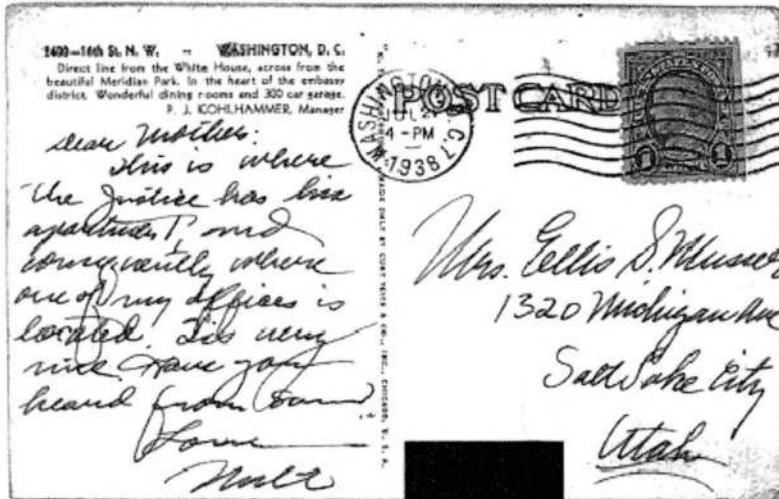 2400—16th St. N. W. -- WASHINGTON, D. C.
Direct line from the White House, across from the
beautiful Meridian Park. In the heart of the embassy
district. Wonderful dining rooms and 300 car garage.
P. J. KOHLHAMMER, Manager
Dear Mother:
This is where
the Justice has his
apartment, and
consequently where
one of my offices is
located. It's very
nice. Have you
heard from
Love
Milt
MADE ONLY BY CURT TEICH & CO., INC., CHICAGO, U. S. A.
POST CARD
WASHINGTON D.C.
JUL 21
4 - PM
1938
1 1
Mrs. Ellis S. Musser
1320 Michigan Ave
Salt Lake City
Utah